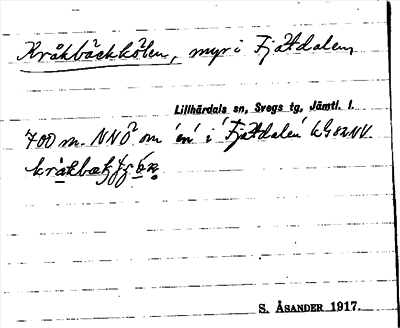 Kråkbäckkölen, myr i Fjätdalen,
Lillhärdals sn, Svegs tg, Jämtl. l.
700 m. NNÖ om 'en' i 'Fjätdalen' LG82NV.
S. ÅSANDER 1917.